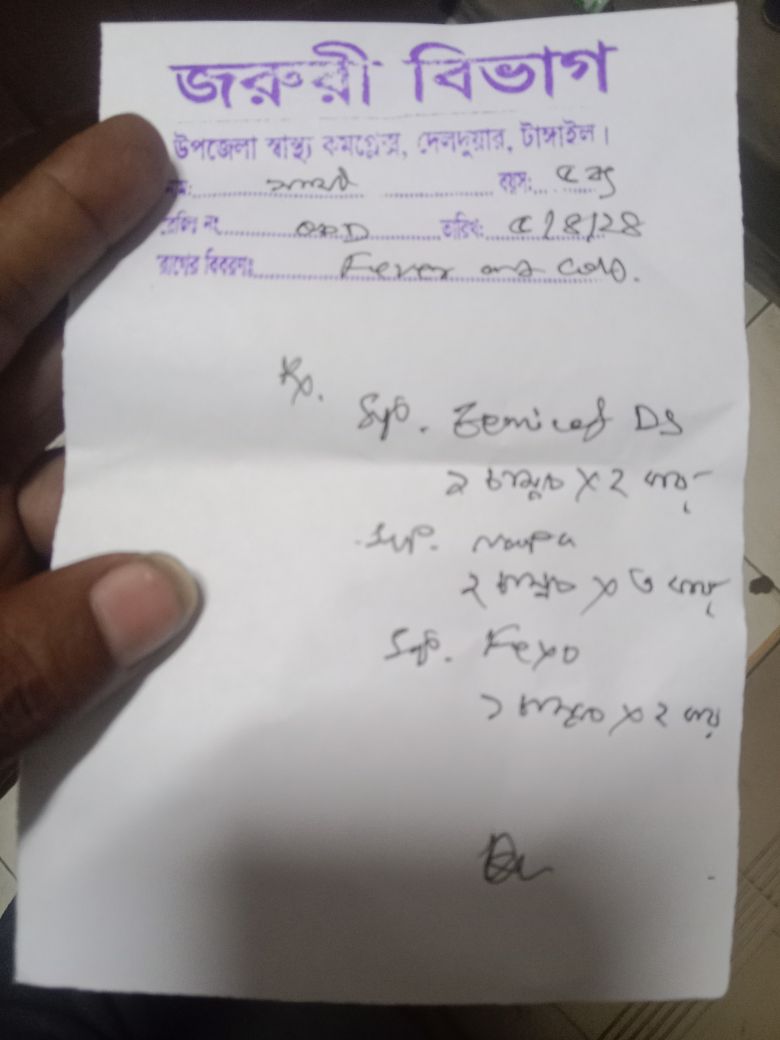 জরুরী বিভাগ
উপজেলা স্বাস্থ্য কমপ্লেক্স, দেলদুয়ার, টাঙ্গাইল।
নাম: বয়স: ৫
রেজিঃ নং তারিখ: ৫/৪/২৪
রোগের বিবরণঃ Fever and Cold.
Rx.
Syp. Zemicef DS
১ চামুচ × ২ বার
Syp. Napa
২ চামুচ × ৩ বার
Syp. Fexo
১ চামুচ × ২ বার